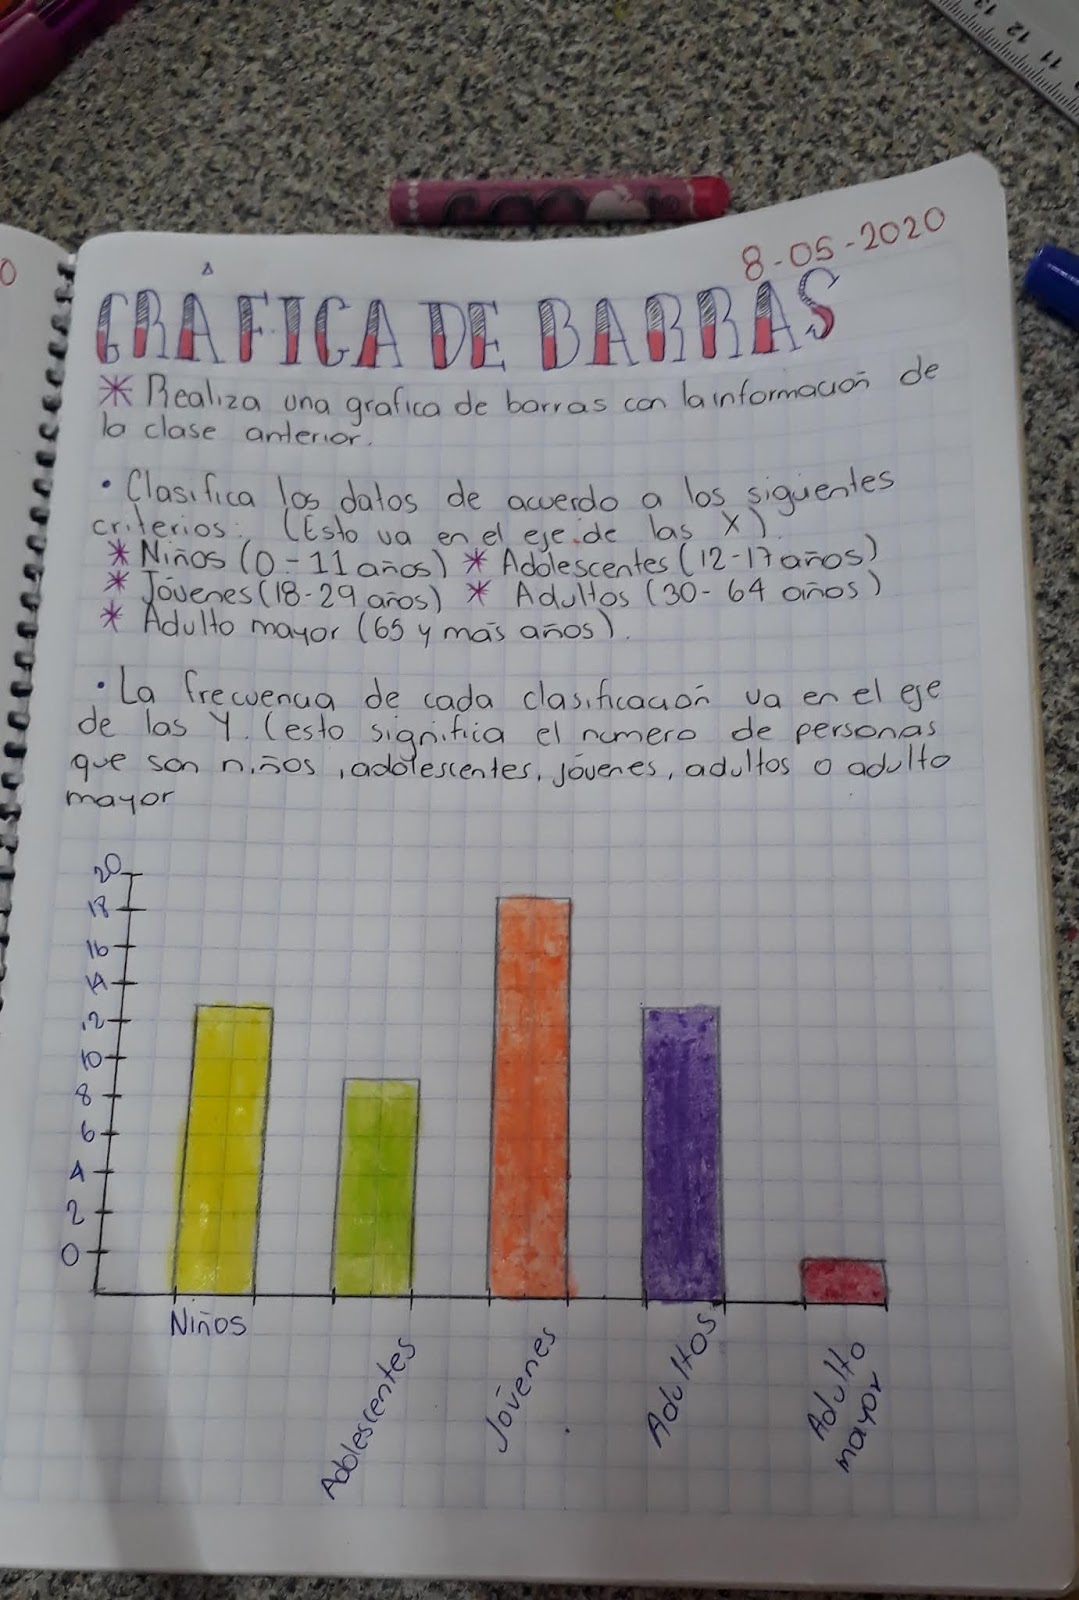 8-05-2020
GRÁFICA DE BARRAS
* Realiza una grafica de barras con la información de
la clase anterior.
• Clasifica los datos de acuerdo a los siguientes
criterios: (Esto va en el eje de las X)
* Niños (0-11 años) * Adolescentes (12-17 años)
* Jóvenes (18-29 años) * Adultos (30-64 años)
* Adulto mayor (65 y más años).
• La frecuencia de cada clasificación va en el eje
de las Y. (esto significa el numero de personas
que son niños, adolescentes, jóvenes, adultos o adulto
mayor
20
18
16
14
12
10
8
6
4
2
0
Niños
Adolescentes
Jóvenes
Adultos
Adulto
mayor
13
12
11
0